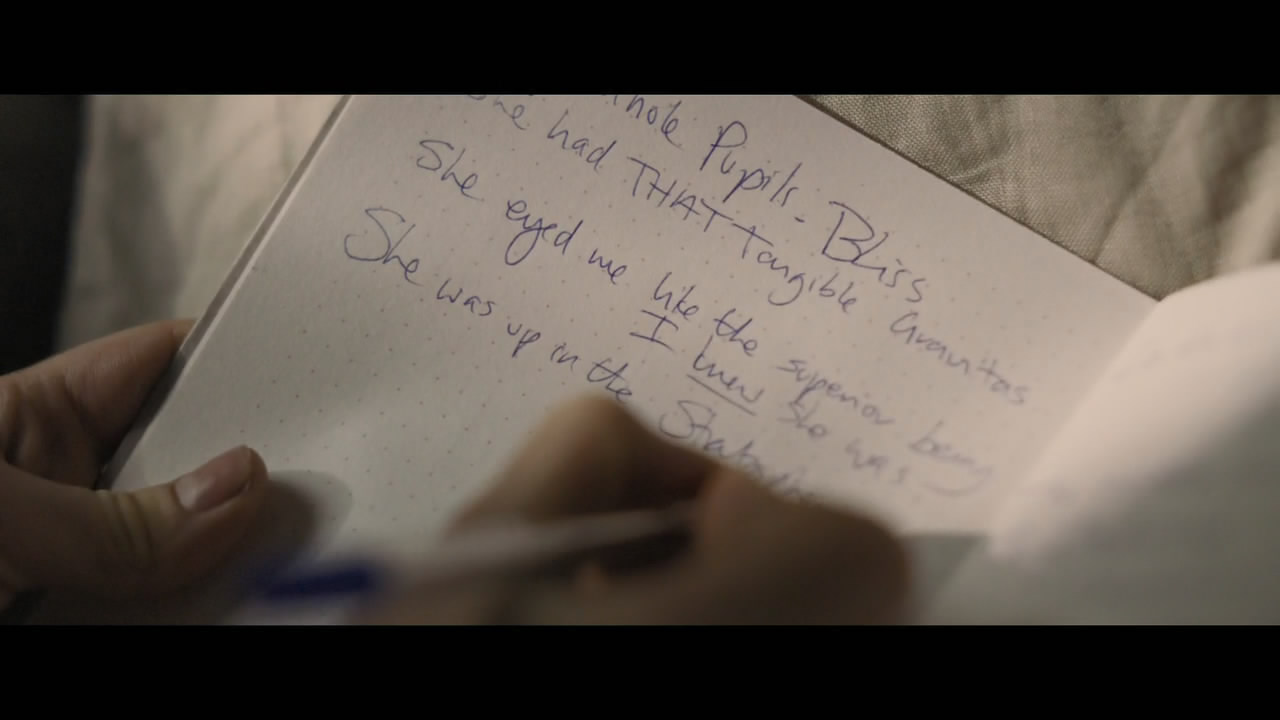 Pupils. Bliss
She had THAT Tangible Gravitas
She eyed me like the superior being
I knew She was
She was up in the